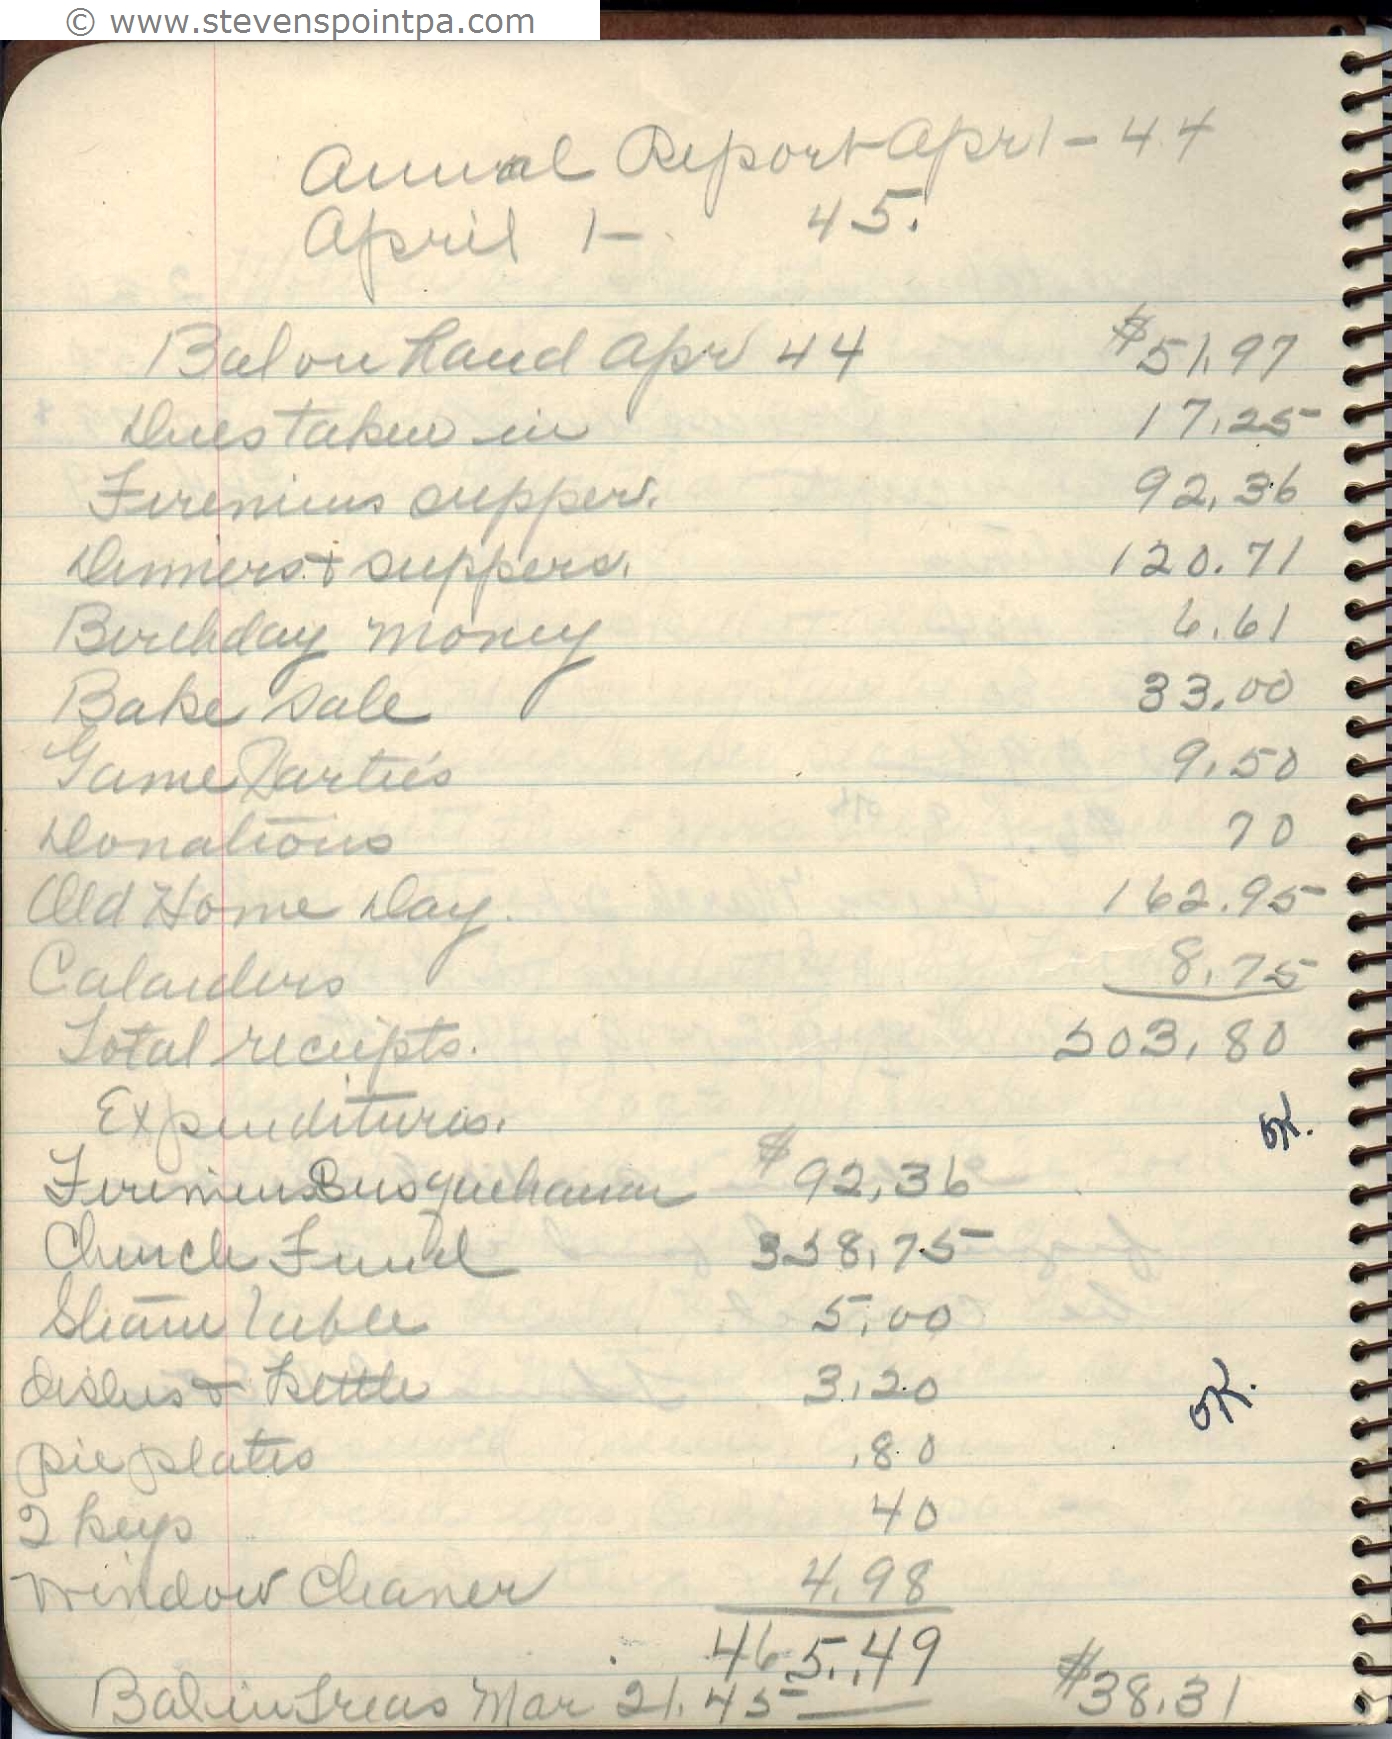 © www.stevenspointpa.com
Annual Report Apr 1 - 44
April 1 - 45.
Bal on hand Apr 44 $51.97
Dues taken in 17.25
Firemens supper. 92.36
Dinners & suppers. 120.71
Birthday money 6.61
Bake Sale 33.00
Game Parties 9.50
Donations 70
Old Home Day. 162.95
Calanders 8.75
Total receipts. 503.80
Expenditures. OK.
Firemens Susquehanna $92.36
Church Fund 358.75
Steam Table 5.00
dishes & Kettle 3.20
OK.
pie plates .80
2 keys 40
Window Cleaner 4.98
465.49
Bal in Treas Mar 21. 45 $38.31